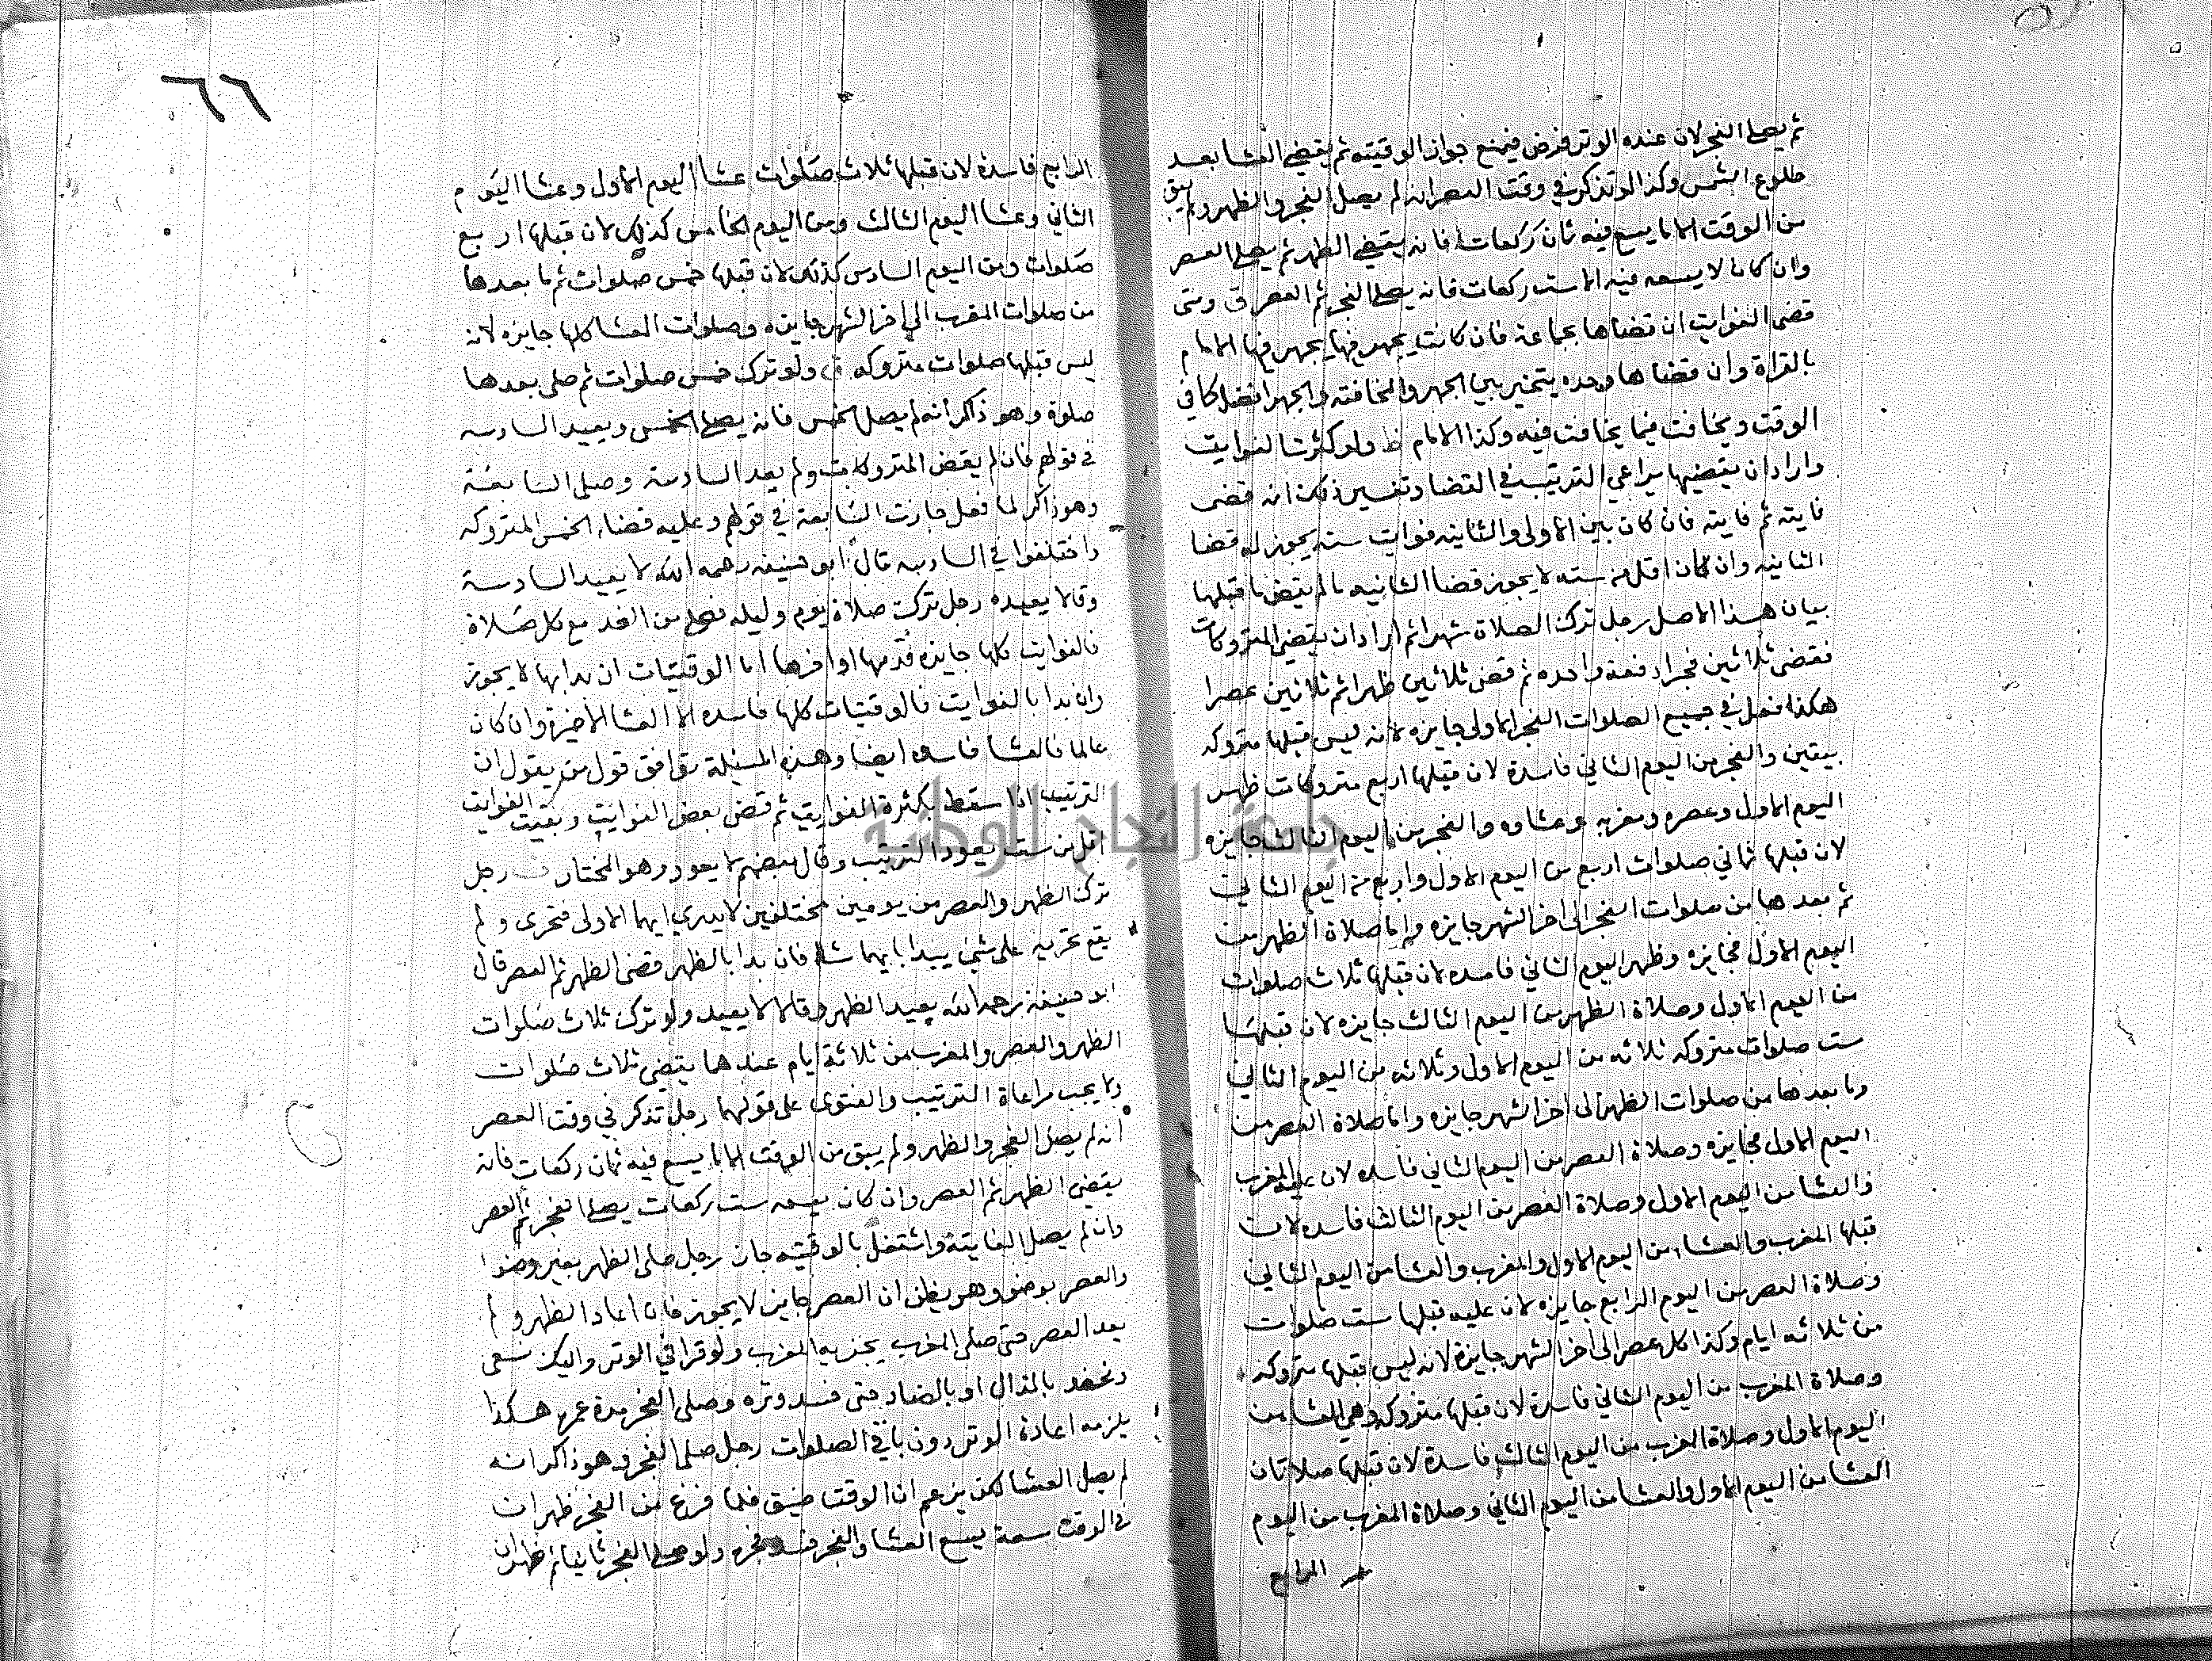 ثم يصلي الفجر لان عنده الوتر فرض فيمنع جواز الوقتيه ثم يقضي العشا بعد
طلوع الشمس وكذا لو تذكر في وقت العصر انه لم يصل الفجر والظهر ولم يبق
من الوقت الا ما يسع فيه ثمان ركعات فانه يقضي الظهر ثم يصلي العصر
وان كان لا يسعه فيه الا ست ركعات فانه يصلي الفجر ثم العصر ومتى
قضى الفوايت ان قضاها بجماعة فان كانت يجهر فيها يجهر فيها الامام
بالقراة وان قضاها وحده يتخير بين الجهر والمخافته والجهر افضل كما في
الوقت ويخافت فيما يخافت فيه وكذا الامام ولو كثرت الفوايت
واراد ان يقضيها يراعي الترتيب في القضا وتفسير ذلك انه قضى
فايته ثم فايته فان كان بين الاولى والثانيه فوايت سته يجوز له قضا
الثانيه وان كان اقل من سته لا يجوز قضا الثانيه ما لم يقض ما قبلها
بيان هذا الاصل رجل ترك الصلاة شهرا ثم اراد ان يقضي المتروكات
فقضى ثلاثين فجرا دفعة واحده ثم قضى ثلاثين ظهرا ثم ثلاثين عصرا
هكذا فعل في جميع الصلوات الفجر الاولى جايزه لانه ليس قبلها متروكه
بيقين والفجر من اليوم الثاني فاسدة لان قبلها اربع متروكات ظهر
اليوم الاول وعصره ومغربه وعشاوه والفجر من اليوم الثالث جايزه
لان قبلها ثماني صلوات اربع من اليوم الاول واربع من اليوم الثاني
ثم بعدها من صلوات الفجر الى اخر الشهر جايزه واما صلاة الظهر من
اليوم الاول فجايزه وظهر اليوم الثاني فاسده لان قبلها ثلاث صلوات
من اليوم الاول وصلاة الظهر من اليوم الثالث جايزه لان قبلها
ست صلوات متروكه ثلاثه من اليوم الاول وثلاثه من اليوم الثاني
وما بعدها من صلوات الظهر الى اخر الشهر جايزه واما صلاة العصر من
اليوم الاول فجايزه وصلاة العصر من اليوم الثاني فاسده لان عليه المغرب
والعشا من اليوم الاول وصلاة العصر من اليوم الثالث فاسده لان
قبلها المغرب والعشا من اليوم الاول والمغرب والعشا من اليوم الثاني
وصلاة العصر من اليوم الرابع جايزه لان عليه قبلها ست صلوات
من ثلاثه ايام وكذا كل عصر الى اخر الشهر جايزة لانه ليس قبلها متروكه
وصلاة المغرب من اليوم الثاني فاسدة لان قبلها متروكه وهي العشا من
اليوم الاول وصلاة المغرب من اليوم الثالث فاسدة لان قبلها صلاتان
العشا من اليوم الاول والعشا من اليوم الثاني وصلاة المغرب من اليوم
الرابع
٦٦
الرابع فاسدة لان قبلها ثلاث صلوات عشا اليوم الاول وعشا اليوم
الثاني وعشا اليوم الثالث ومن اليوم الخامس كذلك لان قبلها اربع
صلوات ومن اليوم السادس كذلك لان قبلها خمس صلوات ثم ما بعدها
من صلوات المغرب الى اخر الشهر جايزه وصلوات العشا كلها جايزه لانه
ليس قبلها صلوات متروكه ولو ترك خمس صلوات ثم صلى بعدها
صلوة وهو ذاكر انه لم يصل الخمس فانه يصلي الخمس ويعيد السادسه
في قولهم فان لم يقض المتروكات ولم يعد السادسة وصلى السابعة
وهو ذاكر لما فعل جازت السابعة في قولهم وعليه قضا الخمس المتروكه
واختلفوا في السادسه قال ابو حنيفه رحمه الله لا يعيد السادسة
وقالا يعيده رجل ترك صلاة يوم وليله فصلى من الغد مع كل صلاة
فالفوايت كلها جايزه قدمها او اخرها اما الوقتيات ان بدا بها لا يجوز
وان بدا بالفوايت فالوقتيات كلها فاسده الا العشا الاخيرة وان كان
عالما فالعشا فاسده ايضا وهذه المسئلة توافق قول من يقول ان
الترتيب اذا سقط بكثرة الفوايت ثم قضى بعض الفوايت وبقيت الفوايت
اقل من ست يعود الترتيب وقال بعضهم لا يعود وهو المختار رجل
ترك الظهر والعصر من يومين مختلفين لا يدري ايهما الاولى فتحرى ولم
يقع تحريه على شيئ يبدا بايهما شا فان بدا بالظهر وقضى الظهر ثم العصر قال
ابو حنيفة رحمه الله يعيد الظهر وقالا لا يعيد ولو ترك ثلاث صلوات
الظهر والعصر والمغرب من ثلاثة ايام عندهما يقضي ثلاث صلوات
ولا يجب مراعاة الترتيب والفتوى على قولهما رجل تذكر في وقت العصر
انه لم يصل الفجر والظهر ولم يبق من الوقت الا ما يسع فيه ثمان ركعات فانه
يقضي الظهر ثم العصر وان كان يسعه ست ركعات يصلي الفجر ثم العصر
وان لم يصل الفايتة واشتغل بالوقتيه جاز رجل صلى الظهر بغير وضوا
والعصر بوضو وهو يظن ان العصر جايز لا يجوز فان اعاد الظهر ولم
يعد العصر حتى صلى المغرب يجزيه المغرب ولو قرا في الوتر واليك نسعى
ونحفد بالذال او بالضاد حتى فسد وتره وصلى الفجر مدة عمره هكذا
يلزمه اعادة الوتر دون باقي الصلوات رجل صلى الفجر وهو ذاكر انه
لم يصل العشا لكن يزعم ان الوقت ضيق فلما فرغ من الفجر ظهر ان
في الوقت سعة يسع العشا والفجر فسد فجره ولو صلى الفجر ثانيا ثم ظهر ان
جامعة النجاح الوطنية